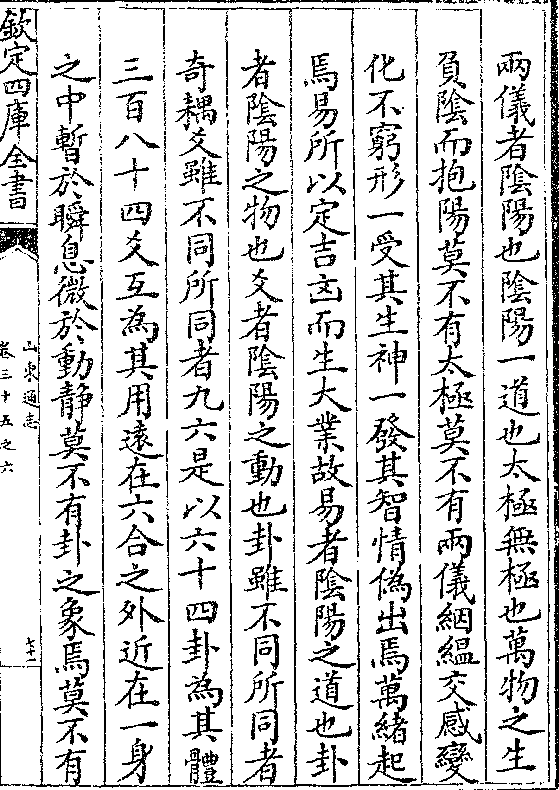 兩儀者陰陽也陰陽一道也太極無極也萬物之生
負陰而抱陽莫不有太極莫不有兩儀絪縕交感變
化不窮形一受其生神一發其智情偽出焉萬緒起
焉易所以定吉㐫而生大業故易者陰陽之道也卦
者陰陽之物也爻者陰陽之動也卦雖不同所同者
奇耦爻雖不同所同者九六是以六十四卦為其體
三百八十四爻互為其用遠在六合之外近在一身
之中暫於瞬息微於動静莫不有卦之象焉莫不有
欽定四庫全書
山東通志
卷三十五之六